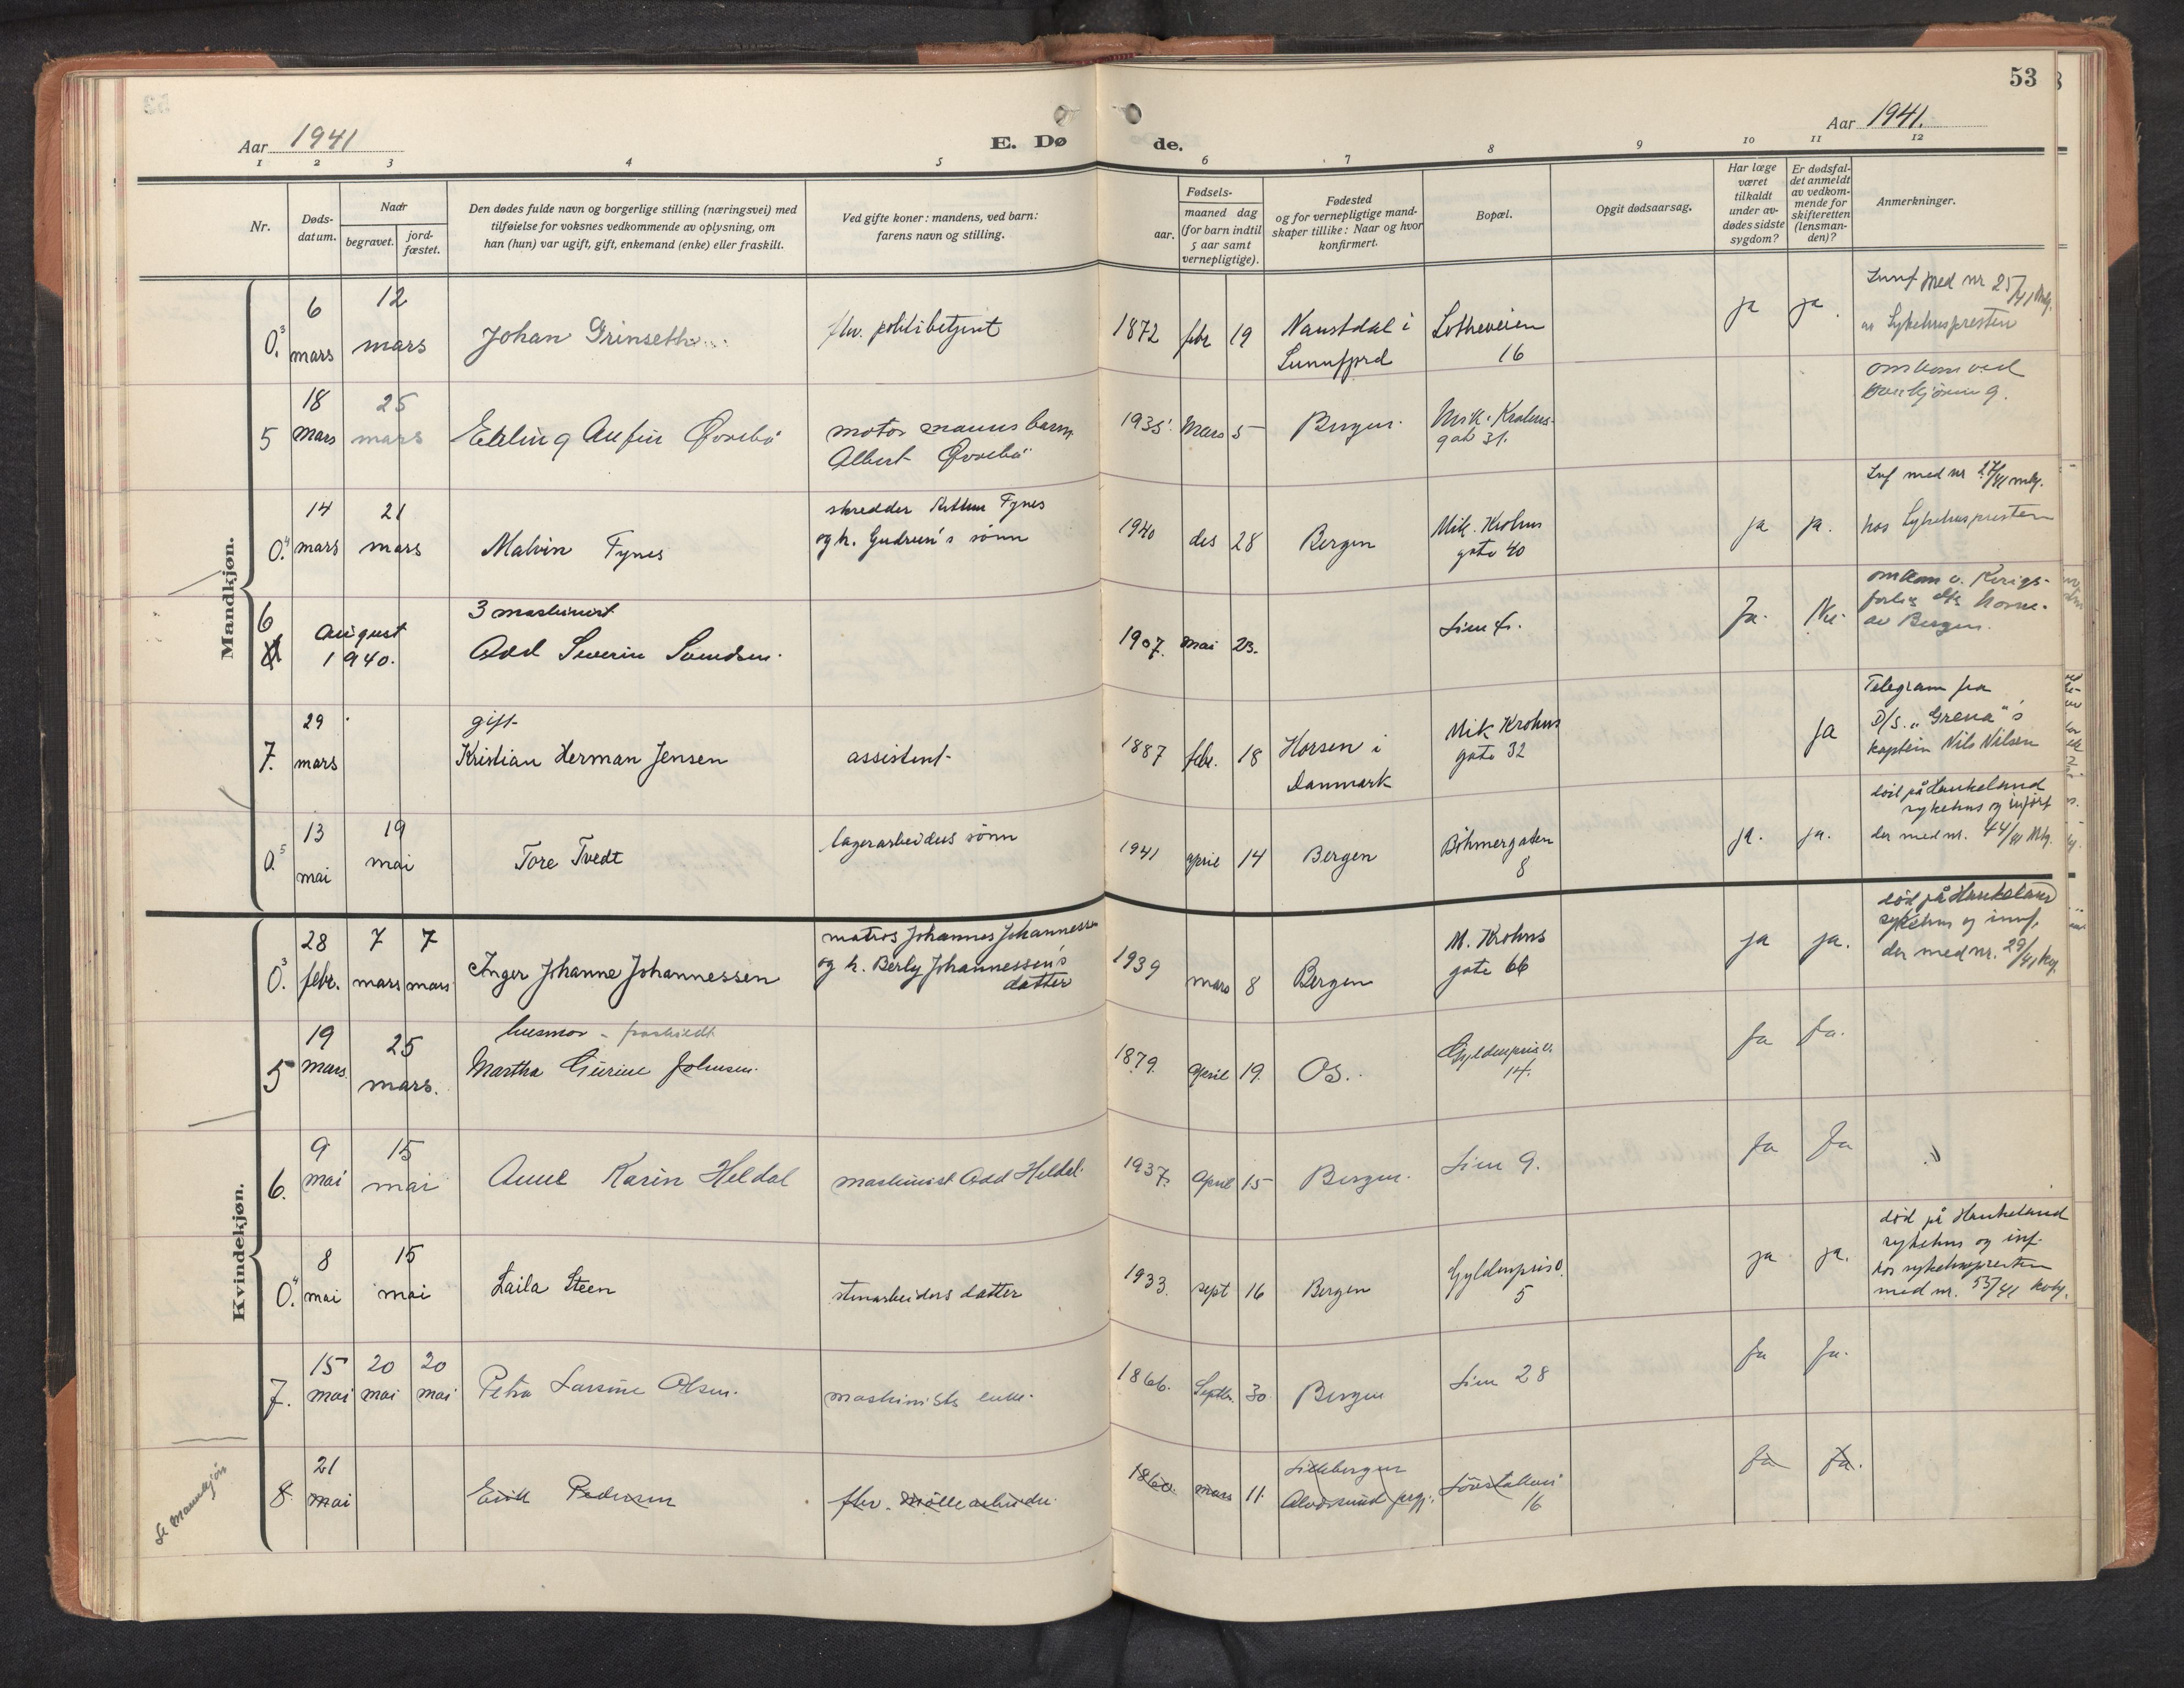 53
Aar 1941
E. Dø de.
Aar 1941.
1 2 3 4 5 6 7 8 9 10 11 12
Nr.
Døds-
datum.
Naar
begravet.
jord-
fæstet.
Den dødes fulde navn og borgerlige stilling (næringsvei) med
tilføielse for voksnes vedkommende av oplysning, om
han (hun) var ugift, gift, enkemand (enke) eller fraskilt.
Ved gifte koner: mandens, ved barn:
farens navn og stilling.
Fødsels-
aar.
maaned dag
(for barn indtil
5 aar samt
vernepligtige).
Fødested
og for vernepligtige mand-
skaper tillike: Naar og hvor
konfirmert.
Bopæl.
Opgit dødsaarsag.
Har læge
været
tilkaldt
under av-
dødes sidste
sygdom?
Er dødsfal-
det anmeldt
av vedkom-
mende for
skifteretten
(lensman-
den)?
Anmerkninger.
Mandkjøn.
0.3
6
mars
12
mars
Johan Grinseth
fhv. politibetjent
1872 febr 19
Naustdal i
Sunnfjord
Lotheveien
16
ja ja.
Innf med nr 25/41 Mkj.
av Sykehuspresten
5
18
mars
25
mars
Erling Anfin Øvrebø
motormanns barn
Albert Øvrebø
1935. Mars 5
Bergen.
Mik. Krohns-
gate 31.
omkom ved
overkjöring.
0.4
14
mars
21
mars
Malvin Fynes
skredder Arthur Fynes
og h. Gudrun's sönn
1940 des 28
Bergen
Mik. Krohns
gate 40
ja ja.
Inf med nr 27/41 mkj.
hos Sykehuspresten
6
August
1940.
3 maskinist
Odd Severin Svendsen.
1907. mai 23.
Lien 4.
Ja. Nei.
omkom v. Krigs-
forlis
av Bergen.
7.
29
mars
gift
Kristian Herman Jensen
assistent
1887 febr. 18
Horsen i
Danmark
Mik Krohns
gate 32
ja
Telegram fra
D/S. „Grena"s
kaptein Nils Nilsen
0.5
13
mai
19
mai
Tore Tvedt
lagerarbeiders sönn
1941 april 14
Bergen
Böhmergaten
8
ja. ja.
död på Haukeland
sykehus og inført
der med nr. 44/41 Mkj.
Kvindekjøn.
0.3
28
febr.
7
mars
7
mars
Inger Johanne Johannessen
matros Johannes Johannessen
og h. Berly Johannessen's
datter
1939 mars 8
Bergen
M. Krohns
gate 66
ja ja.
död på Haukeland
sykehus og innf.
der med nr. 29/41 kvkj.
5
19
mars.
25
mars.
husmor - fraskildt
Martha Gurine Johnsen.
1879. april 19.
Os.
Gyldenprisv.
14.
Ja Ja.
6.
9
mai
15
mai
Anne Karin Heldal
maskinist Odd Heldal.
1937. april 15
Bergen.
Lien 9.
Ja Ja
0.4
8
mai
15
mai
Laila Steen
stenarbeiders datter
1933. sept 16
Bergen
Gyldenprisv.
5
ja ja.
död på Haukeland
sykehus og inf.
hos sykehuspresten
med nr. 53/41 kvkj.
7.
15
mai
20
mai
20
mai
Petra Larsine Olsen.
maskinists enke.
1866. Septbr. 30
Bergen
Lien 28
Ja Ja.
Se Mannkjön
8.
21
mai
Erik Pedersen
fhv. Möllearbeider.
1860. mars 11.
Lillebergen
Alversund prgj.
16
Ja Ja.